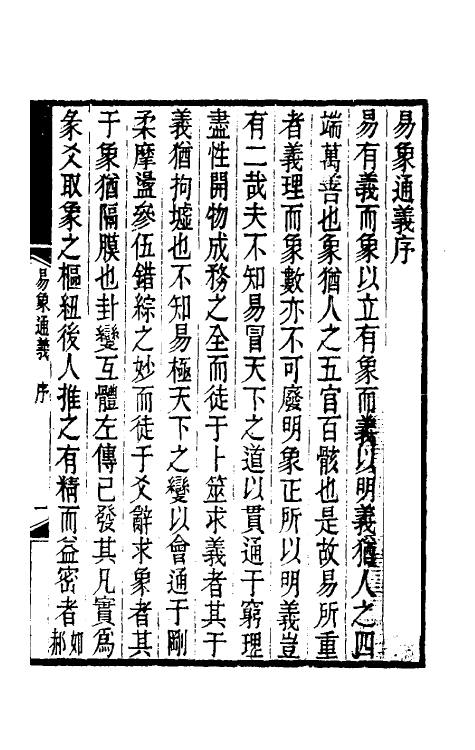 易象通義序
易有義而象以立有象而義以明義猶人之四
端萬善也象猶人之五官百骸也是故易所重
者義理而象數亦不可廢明象正所以明義豈
有二哉夫不知易冒天下之道以貫通于窮理
盡性開物成務之全而徒于卜筮求義者其于
義猶拘墟也不知易極天下之變以會通于剛
柔摩盪參伍錯綜之妙而徒于爻辭求象者其
于象猶隔膜也卦變互體左傳已發其凡實爲
彖爻取象之樞紐後人推之有精而益密者如郝
易象通義 序 一